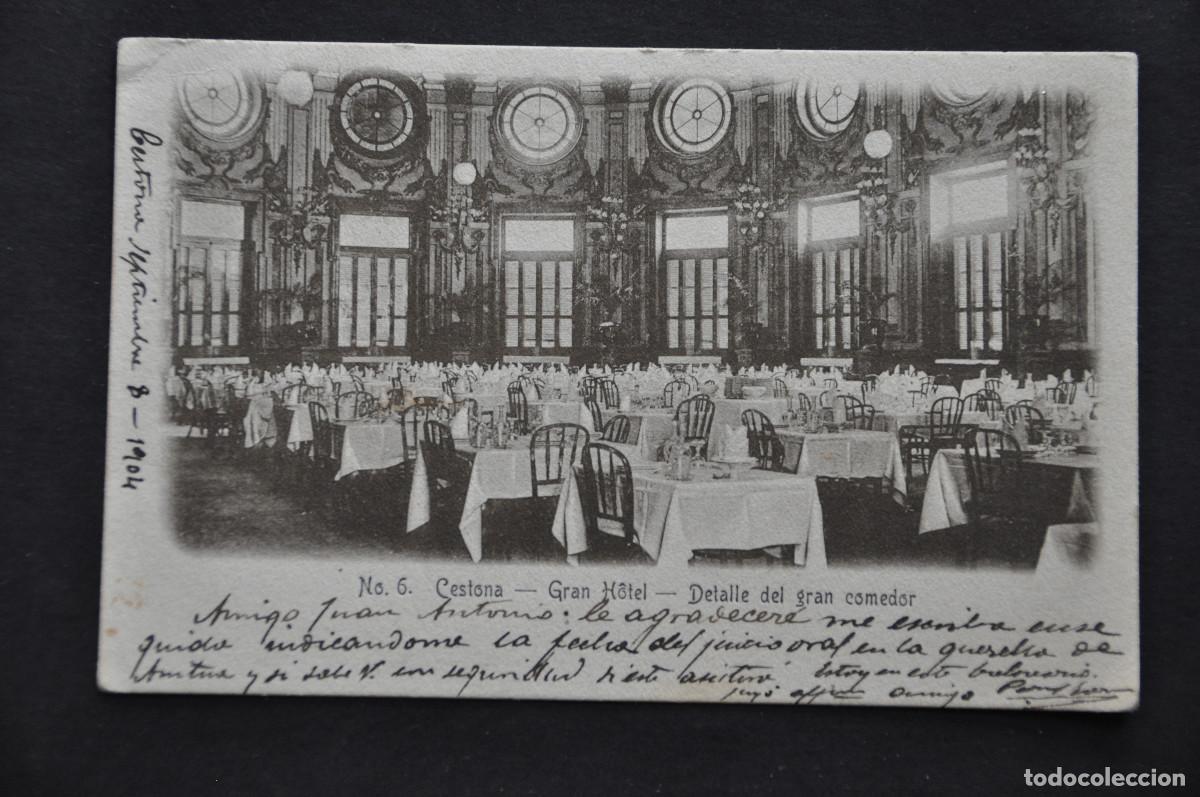 Cestona Septiembre 8-1904
No. 6. Cestona — Gran Hôtel — Detalle del gran comedor
Amigo Juan Antonio: le agradeceré me escriba ense
guida indicandome la fecha del juicio oral en la querella de
y si sabe V. con seguridad si este asistirá Estoy en este balneario.
suyo affmo amigo
todocoleccion